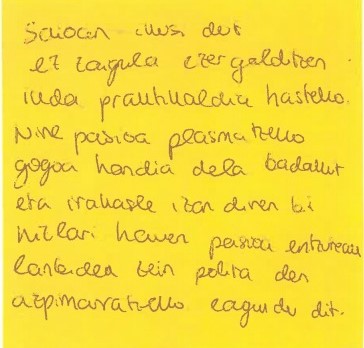 ikusi dut
ez zaigula ezer galditzen
hasteko.
Nire pasioa plasmatzeko
gogoa handia dela badakit
eta irakasle izan diren bi
hizlari hauen pasioa entzuteak
lanbidea zein polita den
azpimarratzeko lagundu dit.